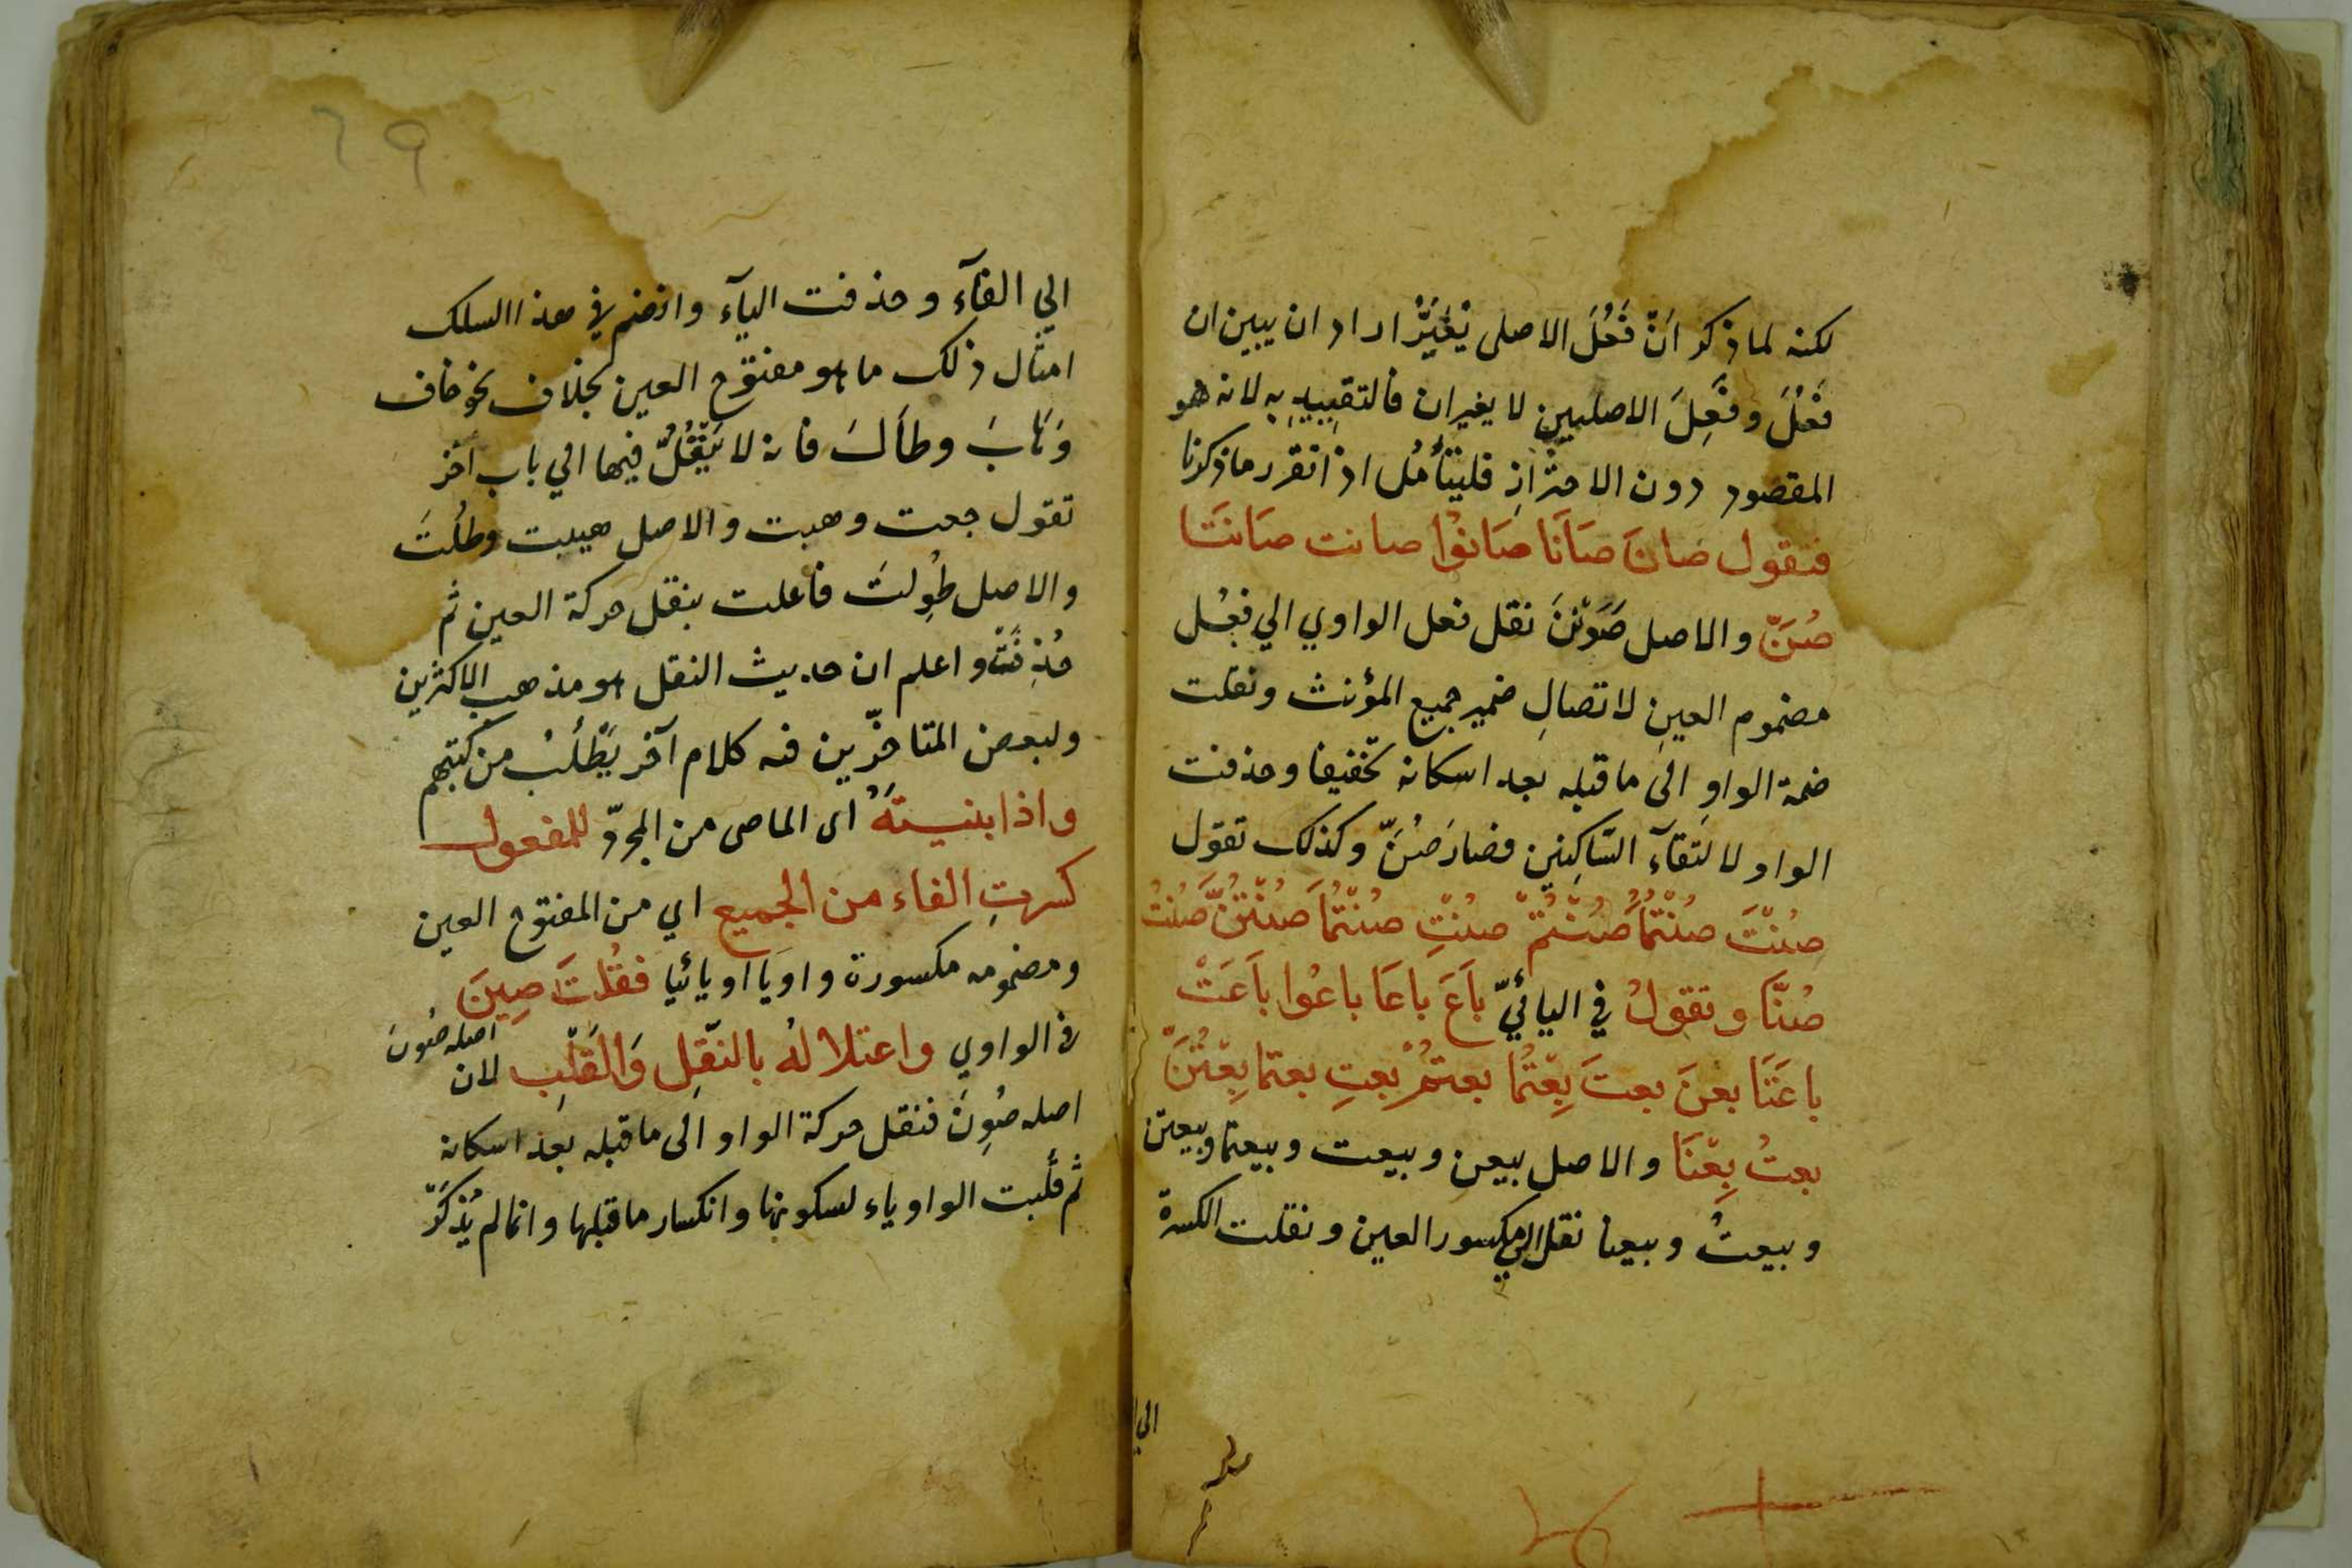 لكنه لما ذكر اَنّ فَعُلَ الاصلى يُغَيَّرُ اراد ان يبين ان
فَعُلَ وفَعِلَ الاصليين لا يغيران فالتقيِيدِ به لانه هو
المقصود دون الاحترازِ فليتأمُل اذا تقرر ما ذكرنا
فتقول صَانَ صَانَا صَانوُا صانت صَانَتَا
صُنَّ والاصل صَوَنْنَ نقل فعل الواوي الي فعُل
مضموم العينِ لاتصالِ ضمير جميع المؤنث ونقلت
ضمة الواوِ الى ما قبله بعد اسكانه تخفيفا وحذفت
الواو لالتقآء السّاكِنين فصارَ صُنَّ وكذلك تقول
صُنْتَ صُنْتُمَا صُنْتُمْ صُنْتِ صُنْتُمَا صُنْتُنَّ صُنْتُ
صُنَّا وتقولُ في اليائيّ بَاعَ باعَا باعُوا باَعَتْ
باعَتَا بعنَ بعتَ بِعْتُمَا بعتمُْ بعتِ بعتما بِعْتُنَّ
بعتُ بِعْنَا والاصل بيعن وبيعت وبيعتما وبيعتن
وبيعتُ وبيعنا نقل الي مكسور العين ونقلت الكسرة
الي
٦٩
الي الفآء وحذفت اليآء وانضم في هذا السلك
امثال ذلك ما هو مفتوح العين بخلاف نحو خاف
وَهَابَ وطاَلَ فانه لا يَنْقُلُ فيها الي باب اخر
تقول خفت وهبت والاصل هيبت وطُلتَ
والاصل طُوِلتَ فاعلت بنقل حركة العين ثم
حُذِفَتْ واعلم ان حديث النقل هو مذهب الاكثرين
ولبعض المتاخّرين فيه كلام آخر يُطْلَبُ من كتبهم
واذا بنيتهُ اى الماضى من المجرّد للمفعول
كسرتِ الفاء من الجميع اي من المفتوح العين
ومضمومه مكسورة واويَا او يائيا فقُلتَ صِينَ
اصله صُونَ
في الواوي واعتلالهُ بالنّقلِ وَالقَلْبِ لان
اصله صُوِنَ فنقل حركة الواو الى ما قبله بعد اسكانه
ثم قُلبت الواو ياء لسكونها وانكسار ما قبلها وانما لم يُذكَرّ